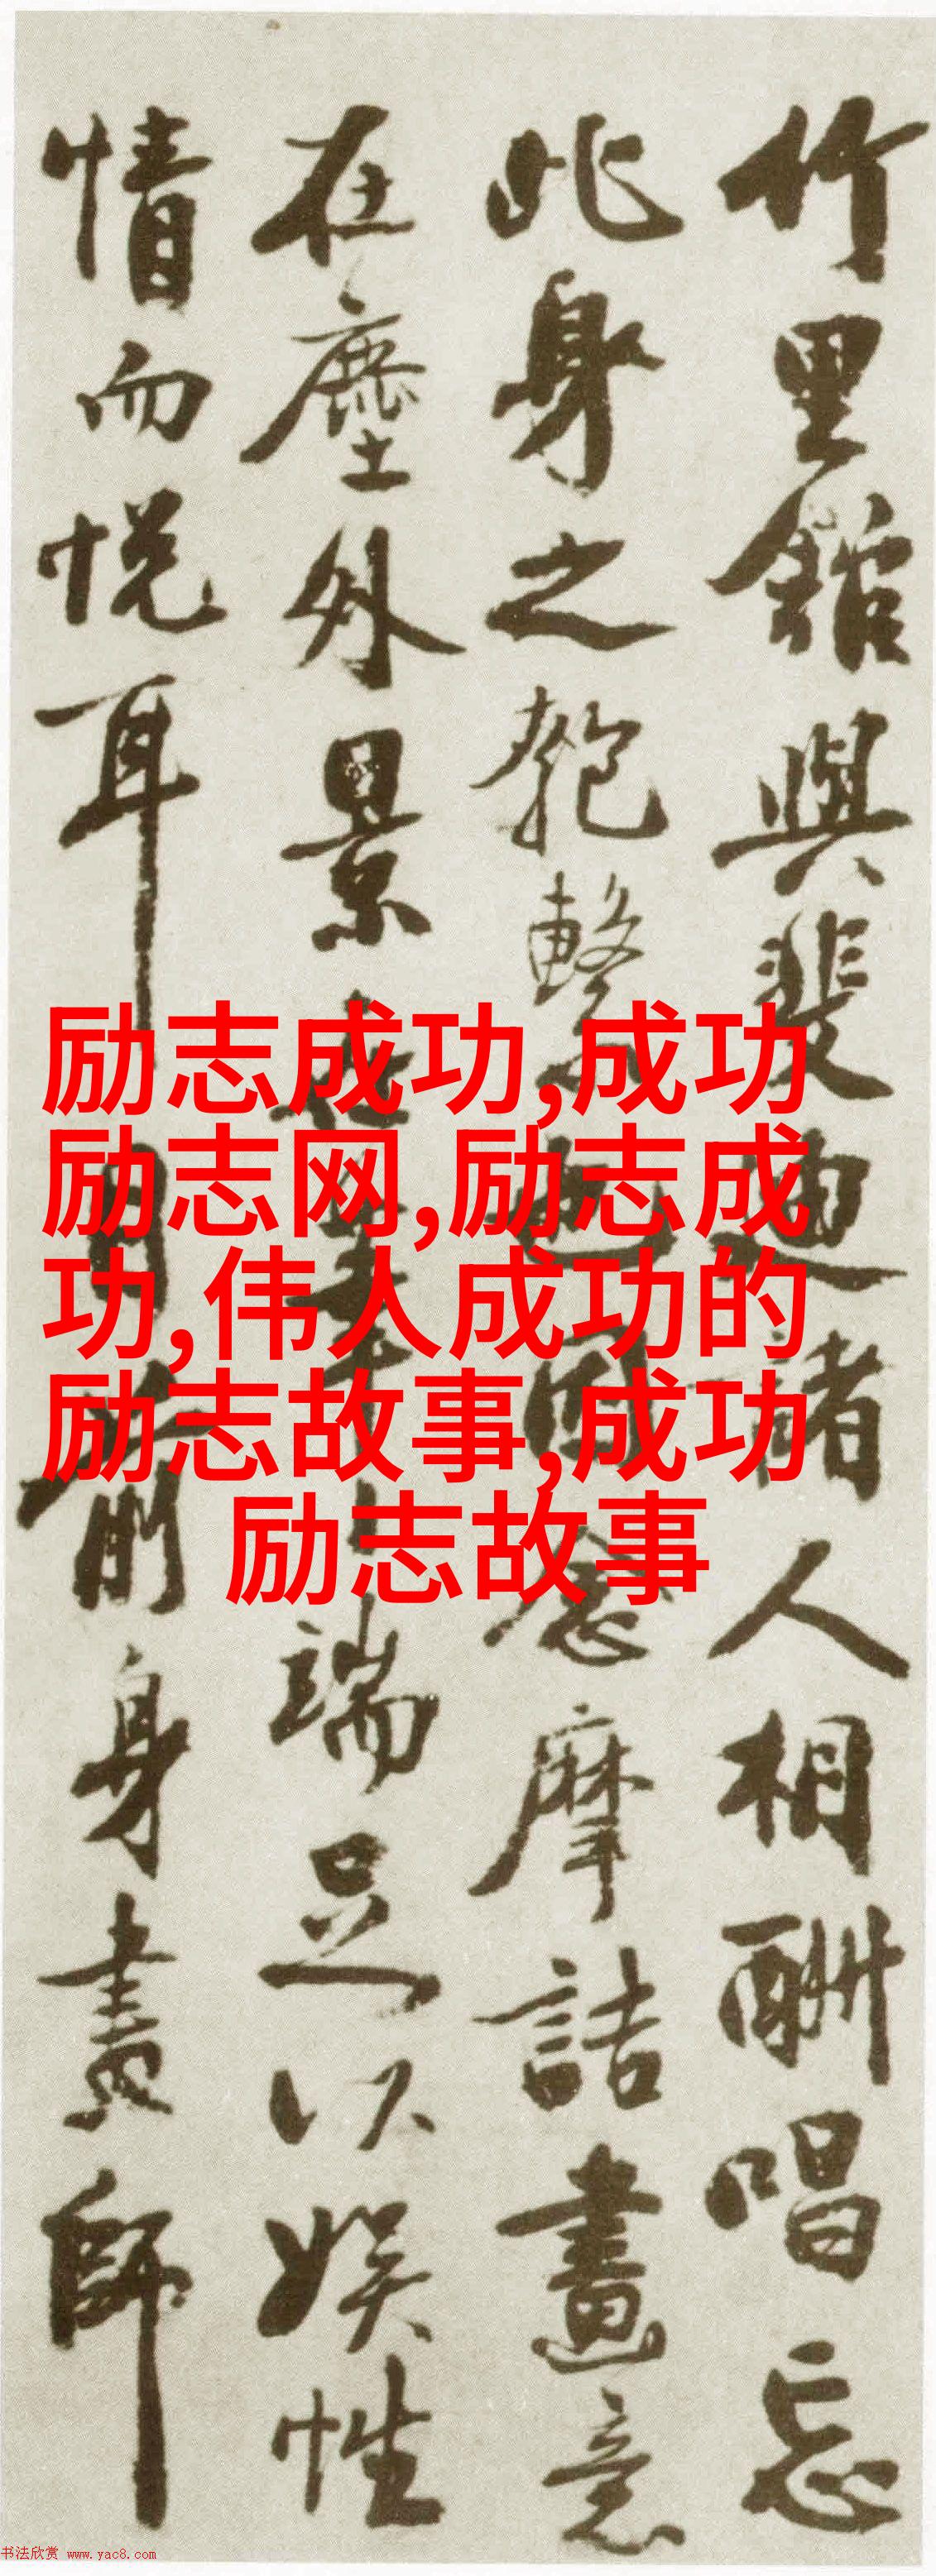 竹里館與斐迪諸人相酬唱忘
此身之匏繫也因念摩詰畫意
在塵外景在筆端足以娛性
情而悅耳目前身畫師
励志成功,成功
励志网,励志成
功,伟人成功的
励志故事,成功
励志故事
书法欣赏 www.yac8.com